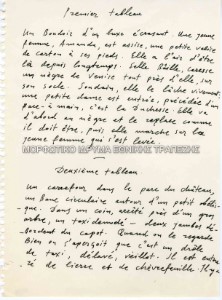 Premier tableau
Un boudoir d'un luxe écrasant. Une jeune
femme, Amanda, est assise, une petite valise
de carton à ses pieds. Elle a l'air d'être
là depuis longtemps. Elle bâille, caresse
un nègre de Venise tout près d'elle, sur
son socle. Soudain, elle se lève vivement,
une petite dame est entrée, précédée d'un
face-à-main, c'est la Duchesse. Elle va
d'abord au nègre et le replace comme
il doit être, puis elle marche sur la
jeune femme qui s'est levée
ΜΟΡΦΩΤΙΚΟ ΙΔΡΥΜΑ ΕΘΝΙΚΗΣ ΤΡΑΠΕΖΗΣ
Deuxième tableau
Un carrefour dans le parc du château,
un banc circulaire autour d'un petit obélis-
-que. Dans un coin, arrêté près d'un gros
arbre, un taxi démodé - deux jambes dé-
bordent du capot. Quand on le regarde
bien on s'aperçoit que c'est un drôle
de taxi, délavé, vieillot. Il est enta-
-ré de lierre et de chèvrefeuille. Il y